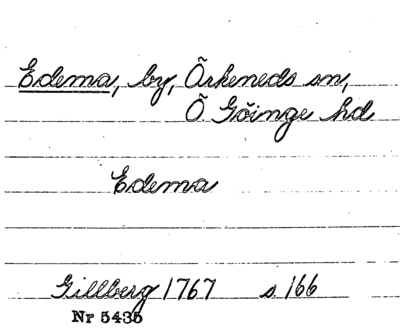 Edema, by, Örkeneds sn,
Ö. Göinge hd
Edema
Gillberg 1767 s. 166
Nr 5435